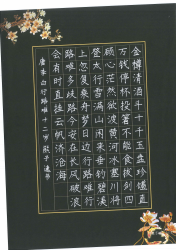 金樽清酒斗十千玉盘珍馐直
万钱停杯投箸不能食拔剑四
顾心茫然欲渡黄河冰塞川将
登太行雪满山闲来垂钓碧溪
上忽复乘舟梦日边行路难行
路难多歧路今安在长风破浪
会有时直挂云帆济沧海
唐李白行路难十二岁 书